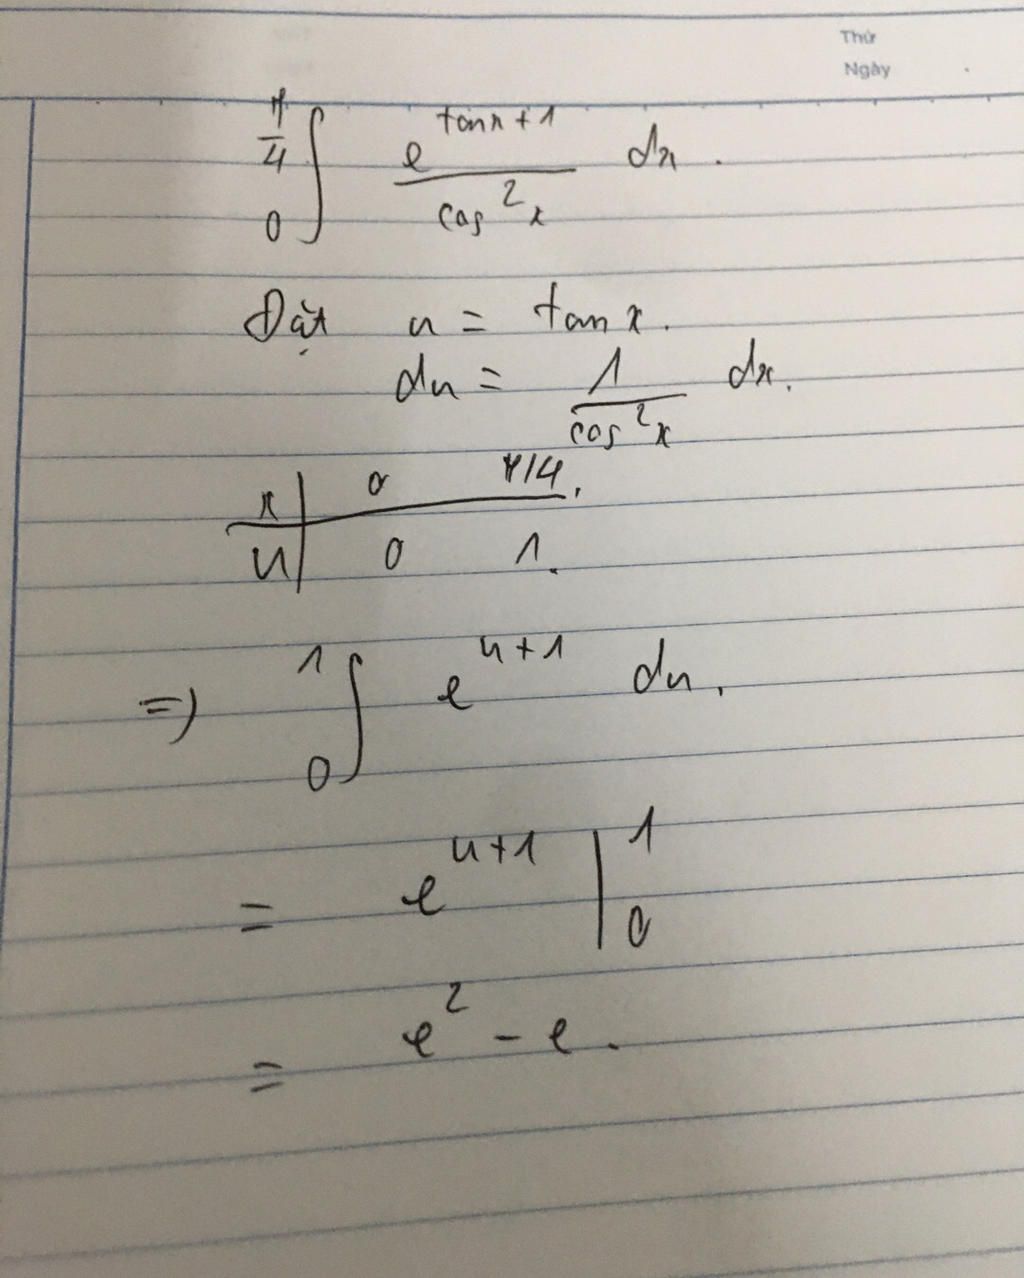 Thứ
Ngày
π/4 ∫ 0 e^(tanx+1) / cos²x dx.
Đặt u = tan x.
du = 1/cos²x dx.
x | 0 π/4.
u | 0 1.
=) 1 ∫ 0 e^(u+1) du.
= e^(u+1) | 1 0
= e² - e.